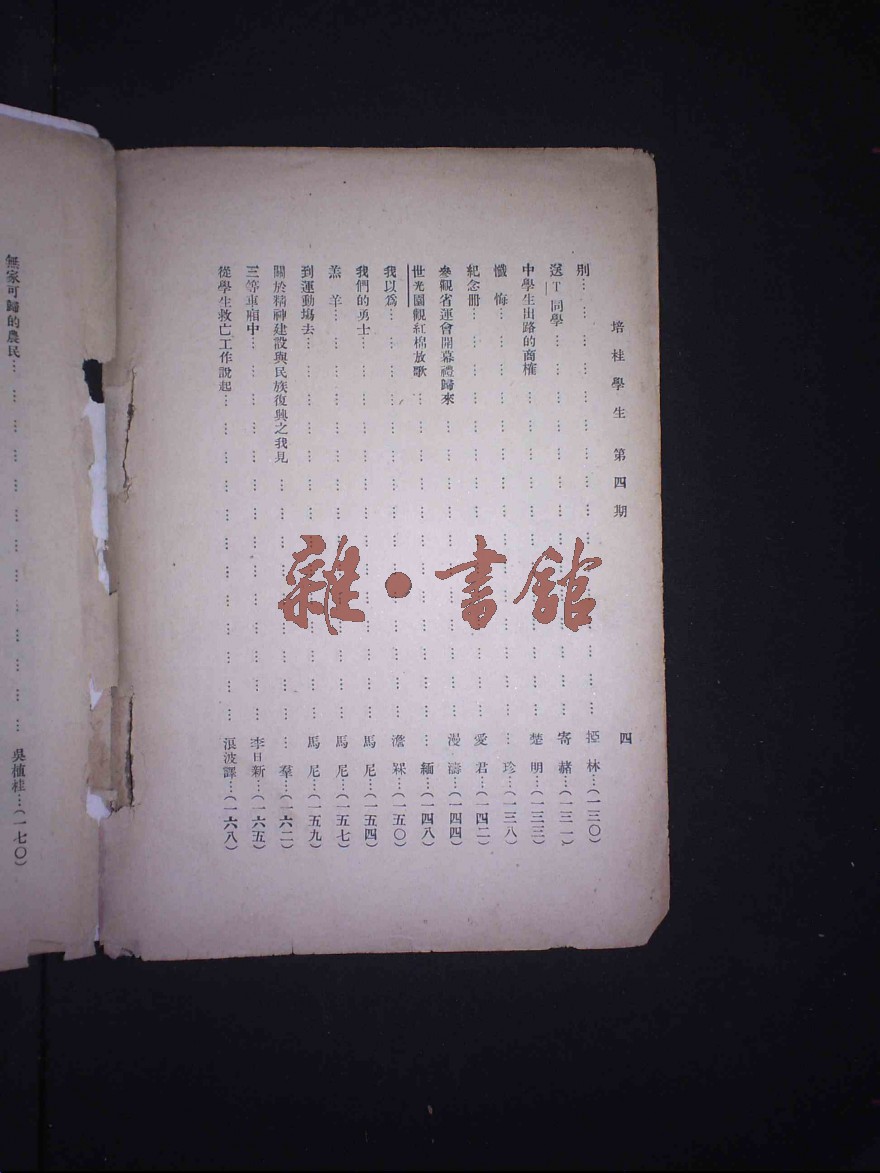 培桂學生 第四期 四
別…………………………………………林…(一三〇)
送T同學…………………………………寄赭…(一三一)
中學生出路的商榷………………………楚明…(一三三)
懺悔………………………………………珍…(一三八)
紀念冊……………………………………愛君…(一四二)
參觀省運會開幕禮歸來…………………漫濤…(一四四)
世光園觀紅棉放歌………………………緬…(一四八)
我以爲……………………………………澹槑…(一五〇)
我們的勇士………………………………馬尼…(一五四)
羔羊………………………………………馬尼…(一五七)
到運動塲去………………………………馬尼…(一五九)
關於精神建設與民族復興之我見………羣…(一六二)
三等車廂中………………………………李日新…(一六五)
從學生救亡工作說起……………………浪波譯…(一六八)
無家可歸的農民…………………………吳植桂…(一七〇)
雜·書館